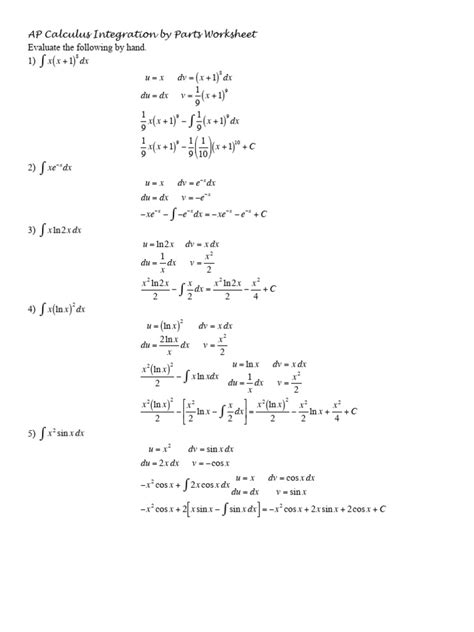 AP Calculus Integration by Parts Worksheet
Evaluate the following by hand.
1) ∫ x(x+1)⁸ dx
u = x dv = (x+1)⁸ dx
du = dx v = 1/9 (x+1)⁹
1/9 x(x+1)⁹ − ∫ 1/9 (x+1)⁹ dx
1/9 x(x+1)⁹ − 1/9 (1/10)(x+1)¹⁰ + C
2) ∫ xe⁻ˣ dx
u = x dv = e⁻ˣ dx
du = dx v = −e⁻ˣ
−xe⁻ˣ − ∫ −e⁻ˣ dx = −xe⁻ˣ − e⁻ˣ + C
3) ∫ x ln 2x dx
u = ln 2x dv = x dx
du = 1/x dx v = x²/2
x² ln 2x/2 − ∫ x/2 dx = x² ln 2x/2 − x²/4 + C
4) ∫ x(ln x)² dx
u = (ln x)² dv = x dx
du = 2 ln x/x dx v = x²/2
x²(ln x)²/2 − ∫ x ln x dx u = ln x dv = x dx
du = 1/x dx v = x²/2
x²(ln x)²/2 − [x²/2 ln x − ∫ x/2 dx] = x²(ln x)²/2 − x²/2 ln x + x²/4 + C
5) ∫ x² sin x dx
u = x² dv = sin x dx
du = 2x dx v = −cos x
−x² cos x + ∫ 2x cos x dx u = x dv = cos x dx
du = dx v = sin x
−x² cos x + 2[x sin x − ∫ sin x dx] = −x² cos x + 2x sin x + 2cos x + C